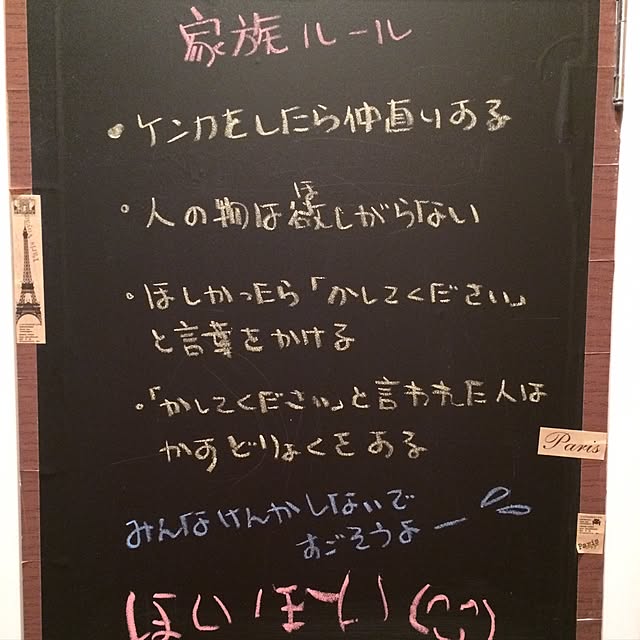 家族ルール
・ケンカをしたら仲直りする
ほ
・人の物は欲しがらない
・ほしかったら「かしてください」
と言葉をかける
・「かしてください」と言われた人は
かすどりょくをする
Paris
みんなけんかしないで
すごそうよー
Paris